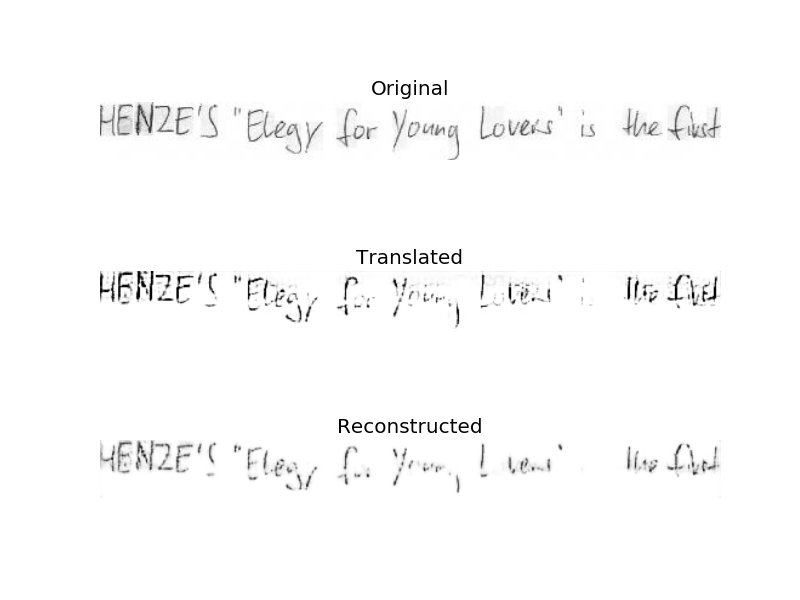 Original
HENZE'S "Elegy for Young Lovers" is the first
Translated
HENZE'S "Elegy for Young Lovers' is the first
Reconstructed
HENZE'S "Elegy for Young Lovers' the first